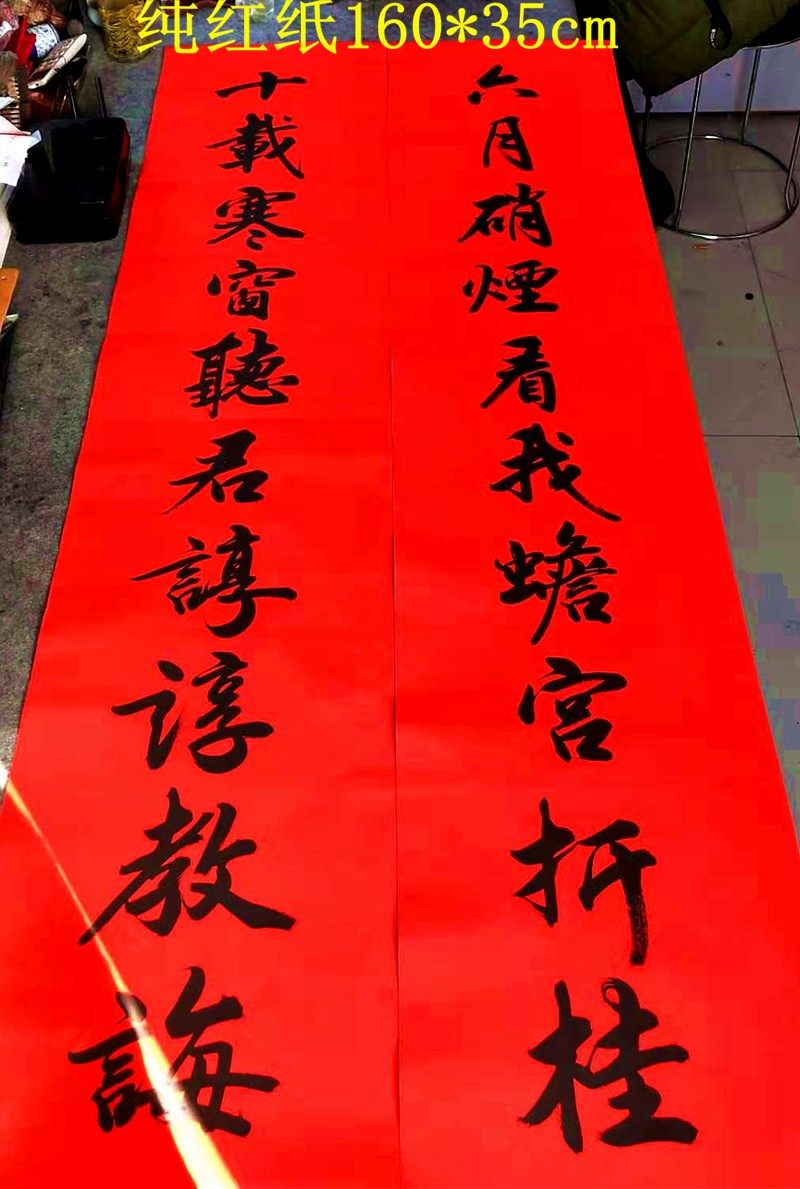 纯红纸160*35cm
六月硝煙看我蟾宫折桂
十載寒窗聽君諄諄教誨